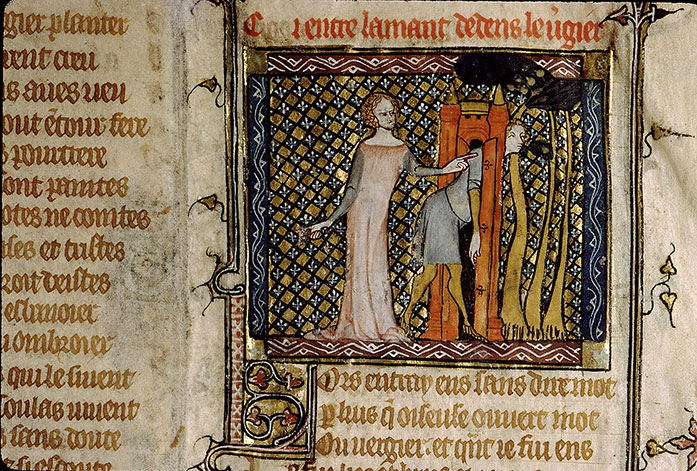 gier planter
rent creu
s aues ueu
out ētour fere
pourtrere
ont paintes
otes ne cointes
ales et tristes
roit deistes
esbanoier
ombroier
qui le siuent
soulas uiuent
s sans doute
Ci entre lamant dedens le ũgier
Lors entray ens sans dire mot
Puis q̄ oiseuse ouuert mot
Ou uergier. et q̄nt ie fui ens